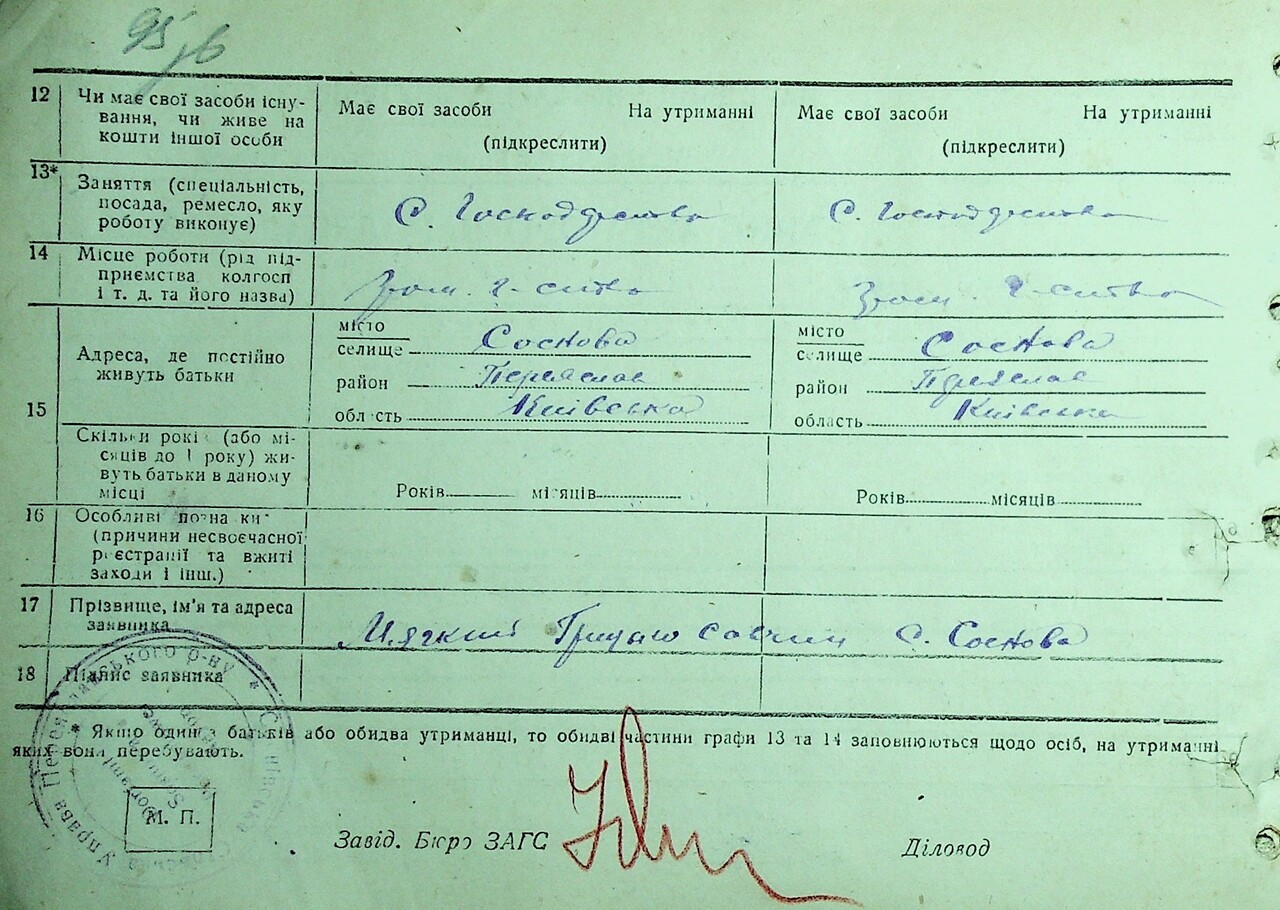 95
12 Чи має свої засоби існу-
вання, чи живе на
кошти іншої особи
Має свої засоби На утриманні
(підкреслити)
Має свої засоби На утриманні
(підкреслити)
13* Заняття (спеціальність,
посада, ремесло, яку
роботу виконує)
С. Господарства
С. Господарства
14 Місце роботи (рід під-
приємства, колгосп
і т. д. та його назва)
Гром. г-ства
Гром. г-ства
15 Адреса, де постійно
живуть батьки
місто
селище Соснова
район Переяслав
область Київська
місто
селище Соснова
район Переяслав
область Київська
Скільки років (або мі-
сяців до 1 року) жи-
вуть батьки в даному
місці
Років місяців
Років місяців
16 Особливі позначки
(причини несвоєчасної
реєстрації та вжиті
заходи і інш.)
17 Прізвище, ім'я та адреса
заявника
Мягкий с. Соснова
18 Підпис заявника
* Якщо один з батьків або обидва утриманці, то обидві частини графи 13 та 14 заповнюються щодо осіб, на утриманні
яких вони перебувають.
М. П.
Завід. Бюро ЗАГС
Діловод